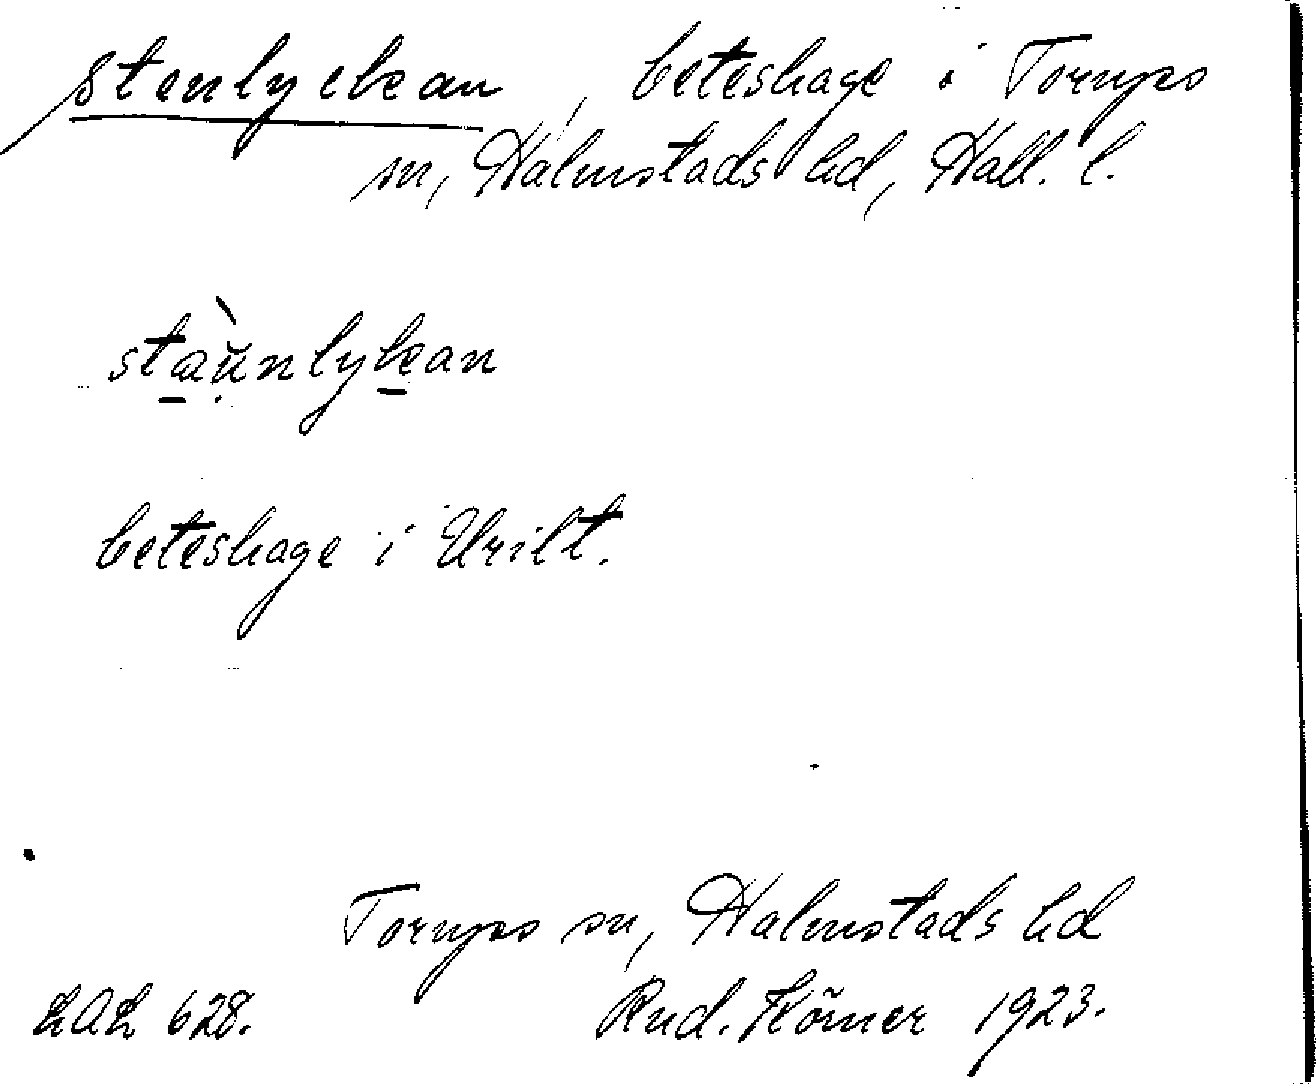 Stenlyckan, beteshage i Torups
sn, Halmstads hd, Hall. l.
stæ̀ŭnlykan
beteshage i Vrilt.
Torups sn, Halmstads hd
LAL 628. Rud. Körner 1923.